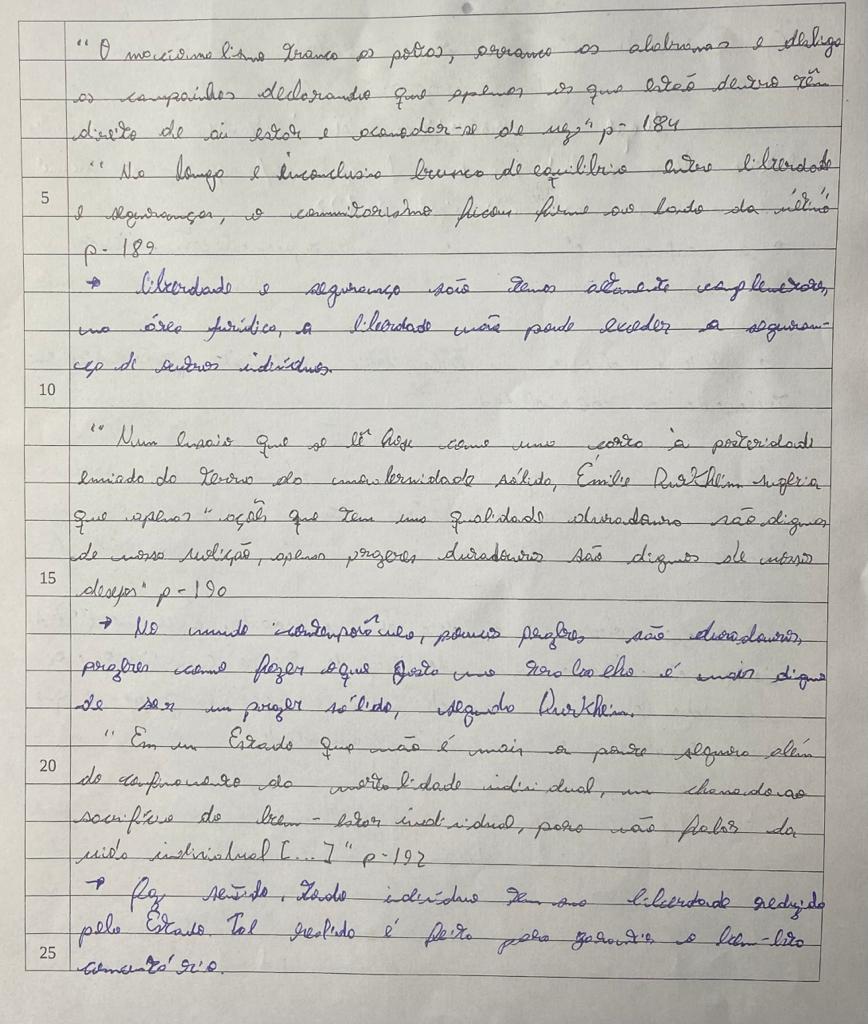 "O nacionalismo tranca as portas, arranca as aldravas e desliga
as campainhas declarando que apenas os que estão dentro têm
direito de aí estar e acomodar-se de vez" p- 184
"No longo e inconclusivo busca de equilíbrio entre liberdade
5
e segurança, o comunitarismo ficou firme ao lado da última"
p- 189
→ liberdade e segurança são temas altamente
na área jurídica, a liberdade não pode exceder a seguran-
ça de outros indivíduos.
10
"Num Ensaio que se lê hoje como uma carta à posteridade
enviada da terra da modernidade sólida, Émilie Durkheim sugeria
que apenas "ações que tem uma qualidade duradoura são dignas
de nossa volição, apenas prazeres duradouros são dignos de nossos
15
desejos" p- 190
→ No mundo contemporâneo, poucos prazeres são duradouros,
prazeres como fazer o que gosta no trabalho é mais digno
de ser um prazer sólido, segundo Durkheim.
"Em um Estado que não é mais a ponte segura além
20
do confinamento da mortalidade individual, um chamado ao
sacrifício do bem-estar individual, para não falar da
vida individual [...]" p- 192
→ Faz sentido, todo indivíduo tem sua liberdade reduzida
pelo Estado. Tal é feito para garantir o bem-
25
comunitário.